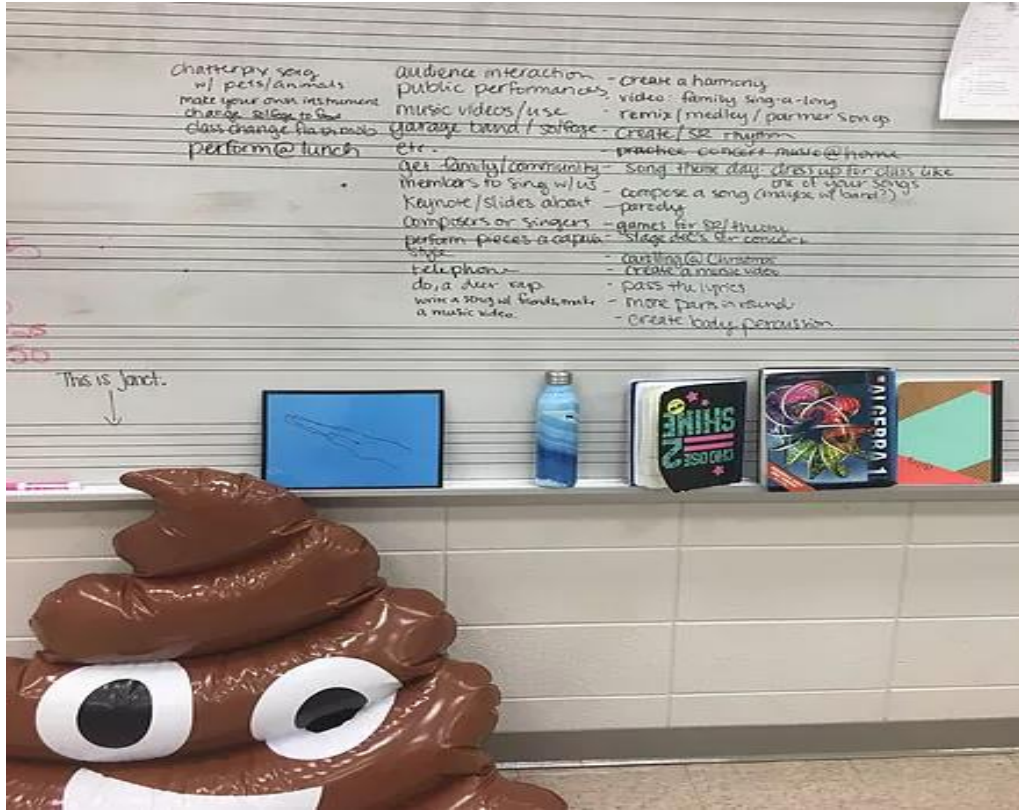 chatterpix song
w/ pets/animals
make your own instrument
change solfege to
class change flashmobs
perform@lunch
audience interaction
public performances
music videos/use
garage band/solfege
etc.
get family/community
members to sing w/us
Keynote/slides about
composers or singers
perform pieces acapella
style
telephone
do, a deer rap
write a song w/ friends, make
a music video.
- create a harmony
- video: family sing-a-long
- remix/medley/partner songs
- create/SR rhythm
- practice concert music@home
- song theme day. dress up for class like
one of your songs
- compose a song (maybe w/ band?)
- parody
- games for SR/theory
- stage dec's for concert
- carolling@Christmas
- create a music video
- pass the lyrics
- more parts in round
- create body percussion
50
This is Janet.
CHOOSE
SHINE
ALGEBRA 1